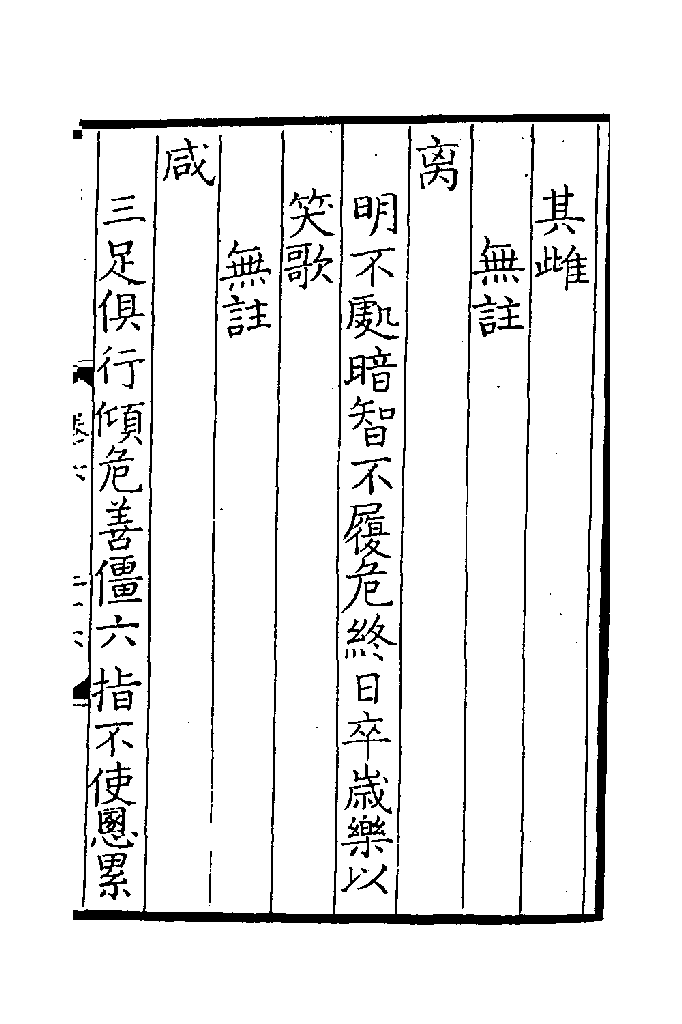 其雌
無註
离
明不處暗智不履危終日卒歲樂以
笑歌
無註
咸
三足俱行傾危善僵六指不使恩累
卷六
二十六